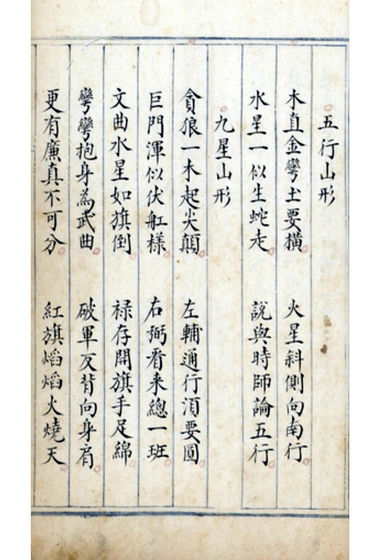 五行山形
木直金彎土要橫　火星斜側向南行
水星一似生蛇走　說與時師論五行
九星山形
貪狼一木起尖顛　左輔通行湏要圓
巨門渾似伏舡樣　右弼看来總一班
文曲水星如旗倒　禄存開旗手足綿
彎彎抱身為武曲　破軍反背向身肩
更有廉真不可分　紅旗熖熖火燒天